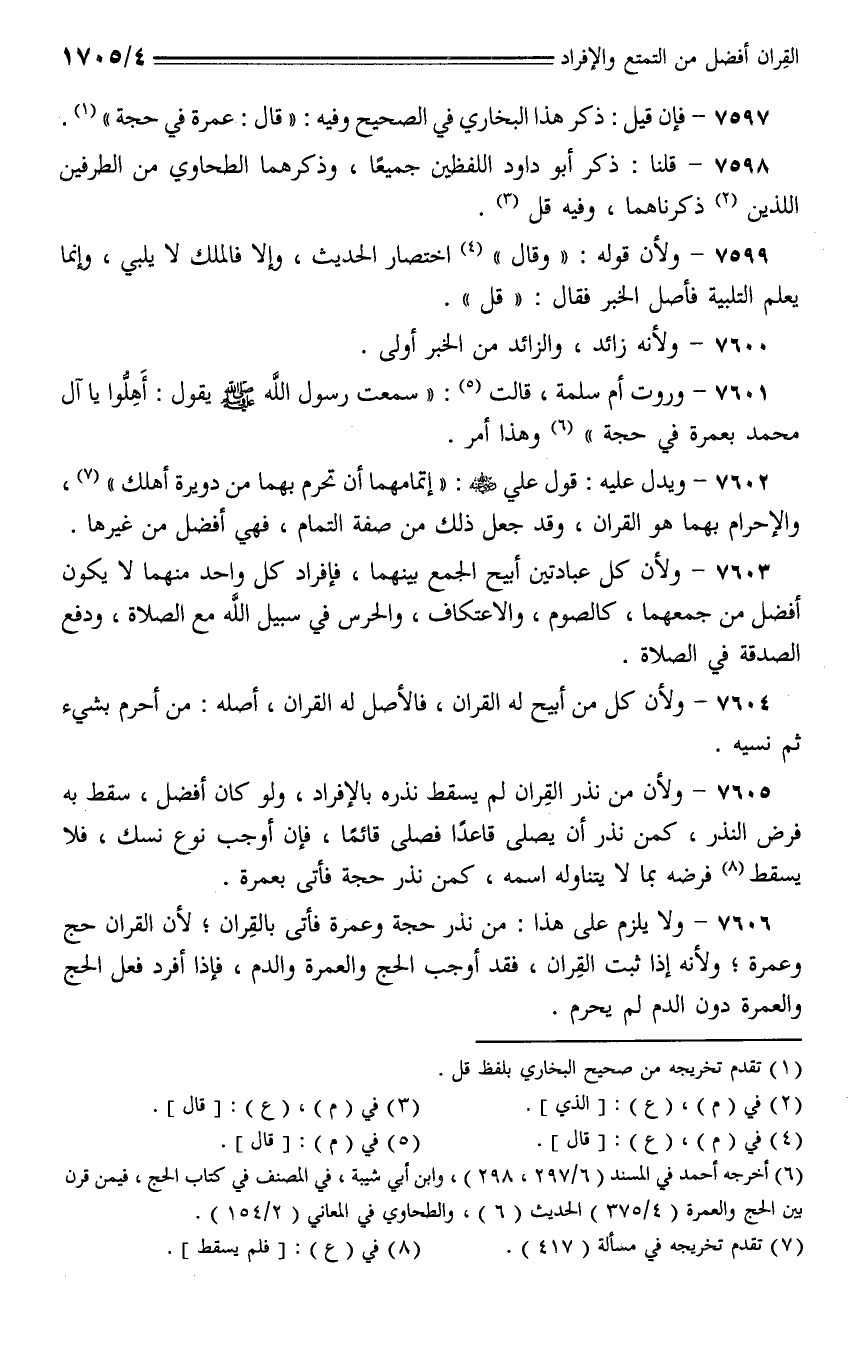 القِران أفضل من التمتع والإفراد ١٧٠٥/٤
٧٥٩٧ - فإن قيل : ذكر هذا البخاري في الصحيح وفيه : « قال : عمرة في حجة » (١) .
٧٥٩٨ - قلنا : ذكر أبو داود اللفظين جميعًا ، وذكرهما الطحاوي من الطرفين
اللذين (٢) ذكرناهما ، وفيه قل (٣) .
٧٥٩٩ - ولأن قوله : « وقال » (٤) اختصار الحديث ، وإلا فالملك لا يلبي ، وإنما
يعلم التلبية فأصل الخبر فقال : « قل » .
٧٦٠٠ - ولأنه زائد ، والزائد من الخبر أولى .
٧٦٠١ - وروت أم سلمة ، قالت (٥) : « سمعت رسول اللَّه ﷺ يقول : أَهِلُّوا يا آل
محمد بعمرة في حجة » (٦) وهذا أمر .
٧٦٠٢ - ويدل عليه : قول علي ﵁ : « إتمامهما أن تحرم بهما من دويرة أهلك » (٧) ،
والإحرام بهما هو القران ، وقد جعل ذلك من صفة التمام ، فهي أفضل من غيرها .
٧٦٠٣ - ولأن كل عبادتين أبيح الجمع بينهما ، فإفراد كل واحد منهما لا يكون
أفضل من جمعهما ، كالصوم ، والاعتكاف ، والحرس في سبيل اللَّه مع الصلاة ، ودفع
الصدقة في الصلاة .
٧٦٠٤ - ولأن كل من أبيح له القران ، فالأصل له القران ، أصله : من أحرم بشيء
ثم نسيه .
٧٦٠٥ - ولأن من نذر القِران لم يسقط نذره بالإفراد ، ولو كان أفضل ، سقط به
فرض النذر ، كمن نذر أن يصلى قاعدًا فصلى قائمًا ، فإن أوجب نوع نسك ، فلا
يسقط (٨) فرضه بما لا يتناوله اسمه ، كمن نذر حجة فأتى بعمرة .
٧٦٠٦ - ولا يلزم على هذا : من نذر حجة وعمرة فأتى بالقِران ؛ لأن القران حج
وعمرة ؛ ولأنه إذا ثبت القِران ، فقد أوجب الحج والعمرة والدم ، فإذا أفرد فعل الحج
والعمرة دون الدم لم يحرم .
(١) تقدم تخريجه من صحيح البخاري بلفظ قل .
(٢) في ( م ) ، ( ع ) : [ الذي ] . (٣) في ( م ) ، ( ع ) : [ قال ] .
(٤) في ( م ) ، ( ع ) : [ قال ] . (٥) في ( م ) : [ قال ] .
(٦) أخرجه أحمد في المسند ( ٢٩٧/٦ ، ٢٩٨ ) ، وابن أبي شيبة ، في المصنف في كتاب الحج ، فيمن قرن
بين الحج والعمرة ( ٣٧٥/٤ ) الحديث ( ٦ ) ، والطحاوي في المعاني ( ١٥٤/٢ ) .
(٧) تقدم تخريجه في مسألة ( ٤١٧ ) . (٨) في ( ع ) : [ فلم يسقط ] .